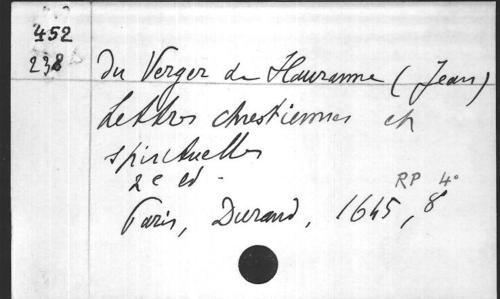 452
238
Du Verger de Hauranne (Jean)
Lettres chrestiennes et
spirituelles
2e ed.
RP 4°
Paris, Durand, 1645, 8°